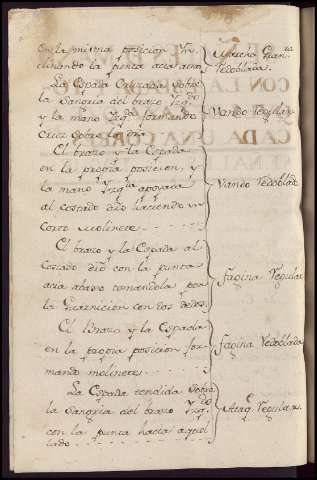 en la misma posicion Yn-
clinando la punta acia avax
Marcha Gran.ra
Redoblada.
La Espada Cruzada sobre
la Sangria del brazo Yzq.do
y la mano Yzq.da formando
Cruz sobre la otra
Vando Regular.
El brazo y la Espada
en la propia posicion, y
la mano Yzq.da apoyara
al costado dro haciendo un
corto Molinete
Vando Redoblado
El brazo y la Espada al
Costado dro con la punta
acia abaxo tomandola por
la Guarnicion con dos dedos
Fagina Regular
El Brazo y la Espada
en la propia posicion for-
mando molinetes
Fagina Redoblada
La Espada tendida sobre
la Sangria del brazo Yzq.do
con la punta hacia aquel
lado
Ataq.e Regular.